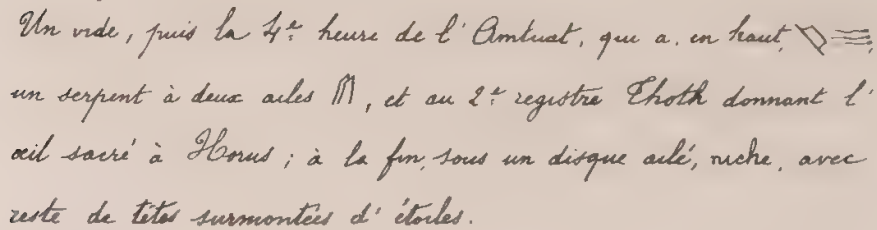 Un vide, puis la 4e heure de l'Amtuat, qui a, en haut,
un serpent à deux ailes, et au 2e registre Thoth donnant l'
œil sacré à Horus ; à la fin, sous un disque ailé, niche, avec
reste de têtes surmontées d'étoiles.